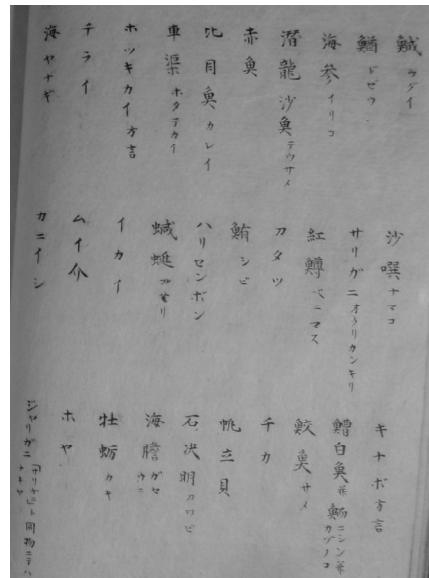 鯎 ウグイ
鰌 ドゼウ
海参 イリコ
潜龍沙魚 テウサメ
赤魚
比目魚 カレイ
車渠 ホタテカイ
ホツキカイ 方言
チライ
海ヤナギ
沙噀 ナマコ
サリガニ オクリカンキリ
紅鱒 ベニマス
カタツ
鮪 シビ
ハリセンボン
蝛蜒
イカイ
ムイ介
カニイシ
キナボ 方言
鰽白魚 並 鯑 ニシン 並 カヅノコ
鮫魚 サメ
チカ
帆立貝
石决明 アワビ
海膽 ガゼ ウニ
牡蛎 カキ
ホヤ
ジャリガニ